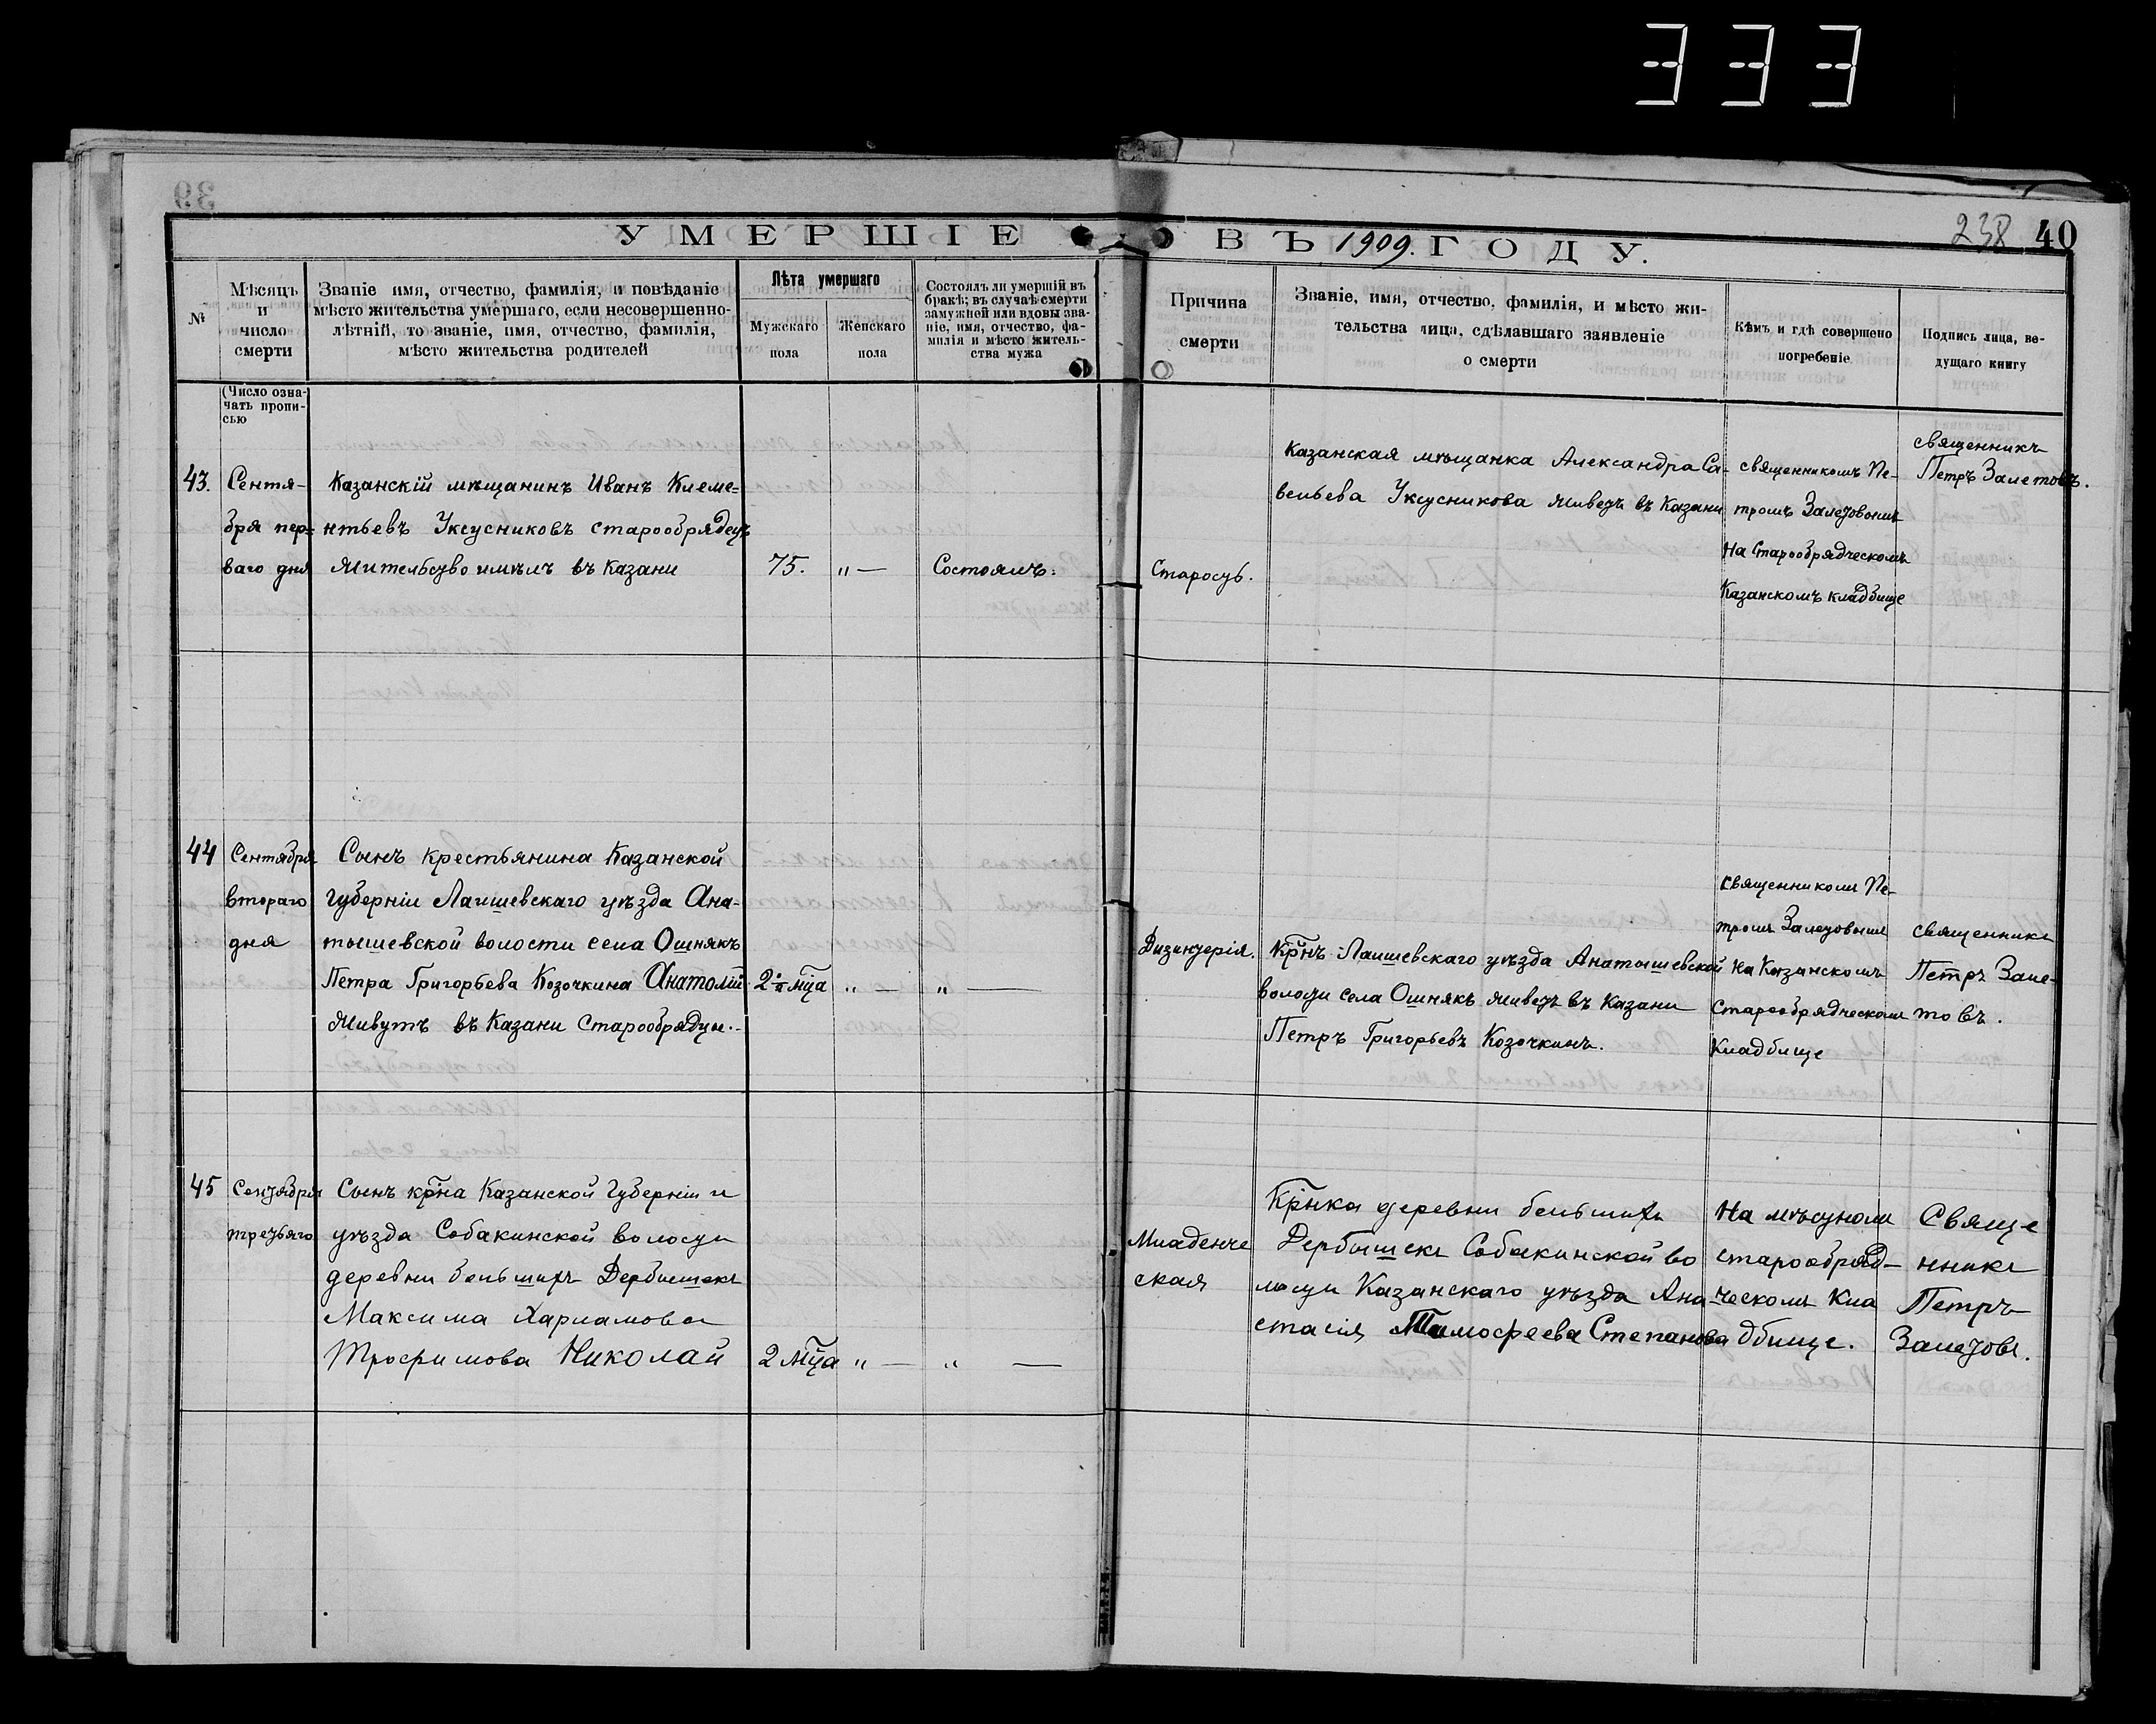 333
39
238 40
УМЕРШІЕ ВЪ 1909. ГОДУ.
№
Мѣсяцъ
и
число
смерти
Званіе имя, отчество, фамилія, и повѣданіе
мѣсто жительства умершаго, если несовершенно-
лѣтній, то званіе, имя, отчество, фамилія,
мѣсто жительства родителей
Лѣта умершаго
Мужскаго
пола
Женскаго
пола
Состоялъ ли умершій въ
бракѣ; въ случаѣ смерти
замужней или вдовы зва-
ніе, имя, отчество, фа-
милія и мѣсто житель-
ства мужа
Причина
смерти
Званіе, имя, отчество, фамилія, и мѣсто жи-
тельства лица, сдѣлавшаго заявленіе
о смерти
Кѣмъ и гдѣ совершено
погребеніе
Подпись лица, ве-
дущаго книгу
(Число озна-
чать пропи-
сью
43.
Сентя-
бря пер-
ваго дня
Казанскій мѣщанинъ Иванъ Клеме=
нтьевъ Уксусниковъ старообрядецъ
Жительство имѣлъ въ Казани
75.
" —
Состоялъ.
Старость.
Казанская мѣщанка Александра Са-
вельева Уксусникова живетъ въ Казани
священникомъ Пе-
тромъ Залетовымъ
на Старообрядческомъ
Казанскомъ кладбище
священникъ
Петръ Залетовъ.
44
Сентября
втораго
дня
Сынъ крестьянина Казанской
губерніи Лаишевскаго уѣзда Ана-
тышевской волости села Ошнякъ
Петра Григорьева Козочкина Анатолій
Живутъ въ Казани Старообрядцы.
мца
" —
" —
Дизентерія.
Крнъ Лаишевскаго уѣзда Анатышевской
волости села Ошнякъ живетъ въ Казани
Петръ Григорьевъ Козочкинъ.
священникомъ Пе-
тромъ Залетовымъ
на Казанскомъ
Старообрядческомъ
Кладбище
священникъ
Петръ Зале-
товъ.
45
Сентября
третьяго
Сынъ крна Казанской Губерніи и
уѣзда Собакинской волости
деревни большихъ Дербышекъ
Максима Харламова
Трофимова Николай
2 мца
" —
" —
Младенче
ская
Крнка деревни большихъ
Дербышекъ Собакинской во
лости Казанскаго уѣзда Ана
стасія Тимофеева Степанова
На мѣстномъ
старообряд-
ческомъ Кла
дбище.
Свяще
нникъ
Петръ
Залетовъ.